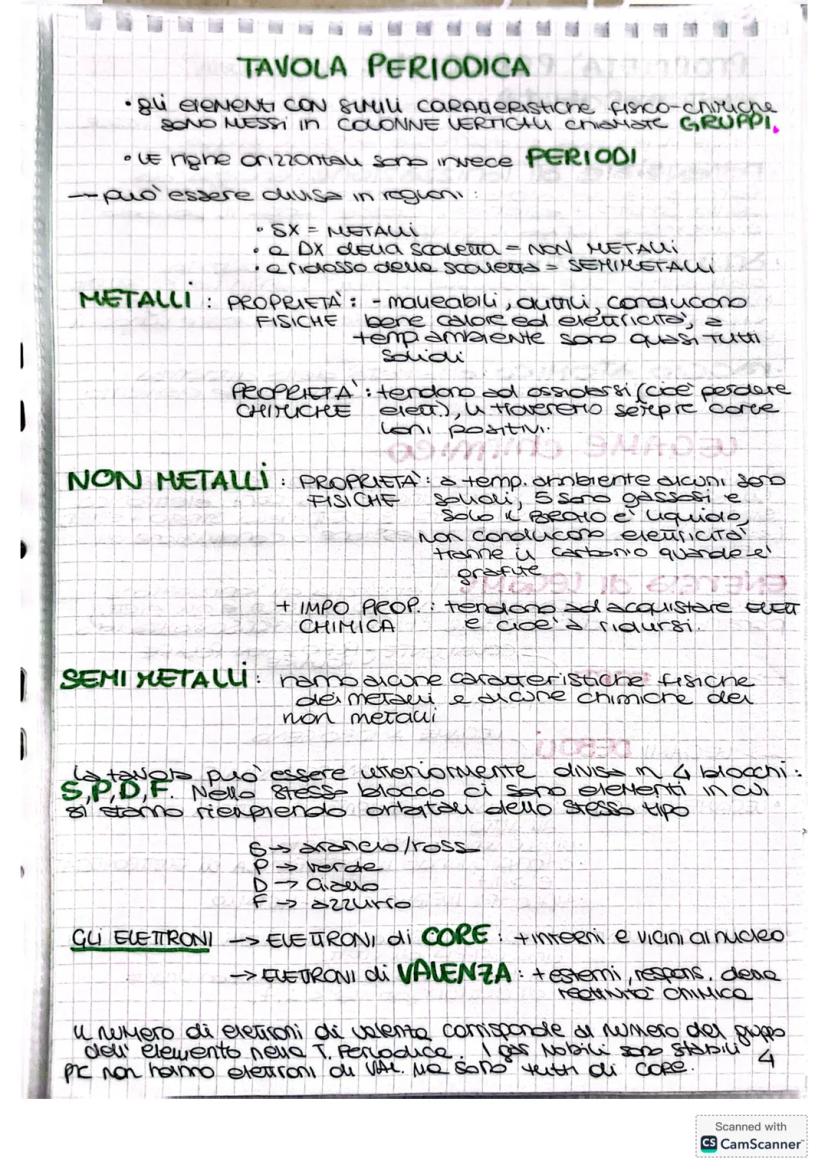 TAVOLA PERIODICA
• gli elementi con simili caratteristiche fisico-chimiche
sono messi in colonne verticali chiamate GRUPPI.
• le righe orizzontali sono invece PERIODI
— può essere divisa in regioni:
• SX = METALLI
• a DX della scaletta = NON METALLI
• a ridosso della scaletta = SEMIMETALLI
METALLI: PROPRIETÀ: - malleabili, duttili, conducono
FISICHE bene calore ed elettricità, a
temp ambiente sono quasi tutti
solidi
PROPRIETÀ: tendono ad ossidarsi (cioè perdere
CHIMICHE elett), li troveremo sempre come
ioni positivi.
NON METALLI: PROPRIETÀ: a temp. ambiente alcuni sono
FISICHE solidi, 5 sono gassosi e
solo il BROMO è liquido,
non conducono elettricità
tranne il carbonio quando è
grafite
+ IMPO PROP.: tendono ad acquistare elett
CHIMICA e cioè a ridursi.
SEMI METALLI: hanno alcune caratteristiche fisiche
dei metalli e alcune chimiche dei
non metalli
La tavola può essere ulteriormente divisa in 4 blocchi:
S,P,D,F. Nello stesso blocco ci sono elementi in cui
si stanno riempiendo orbitali dello stesso tipo
S → arancio/ross
P → verde
D → giallo
F → azzurro
GLI ELETTRONI → ELETTRONI di CORE: + interni e vicini al nucleo
→ ELETTRONI di VALENZA: + esterni, respons. della
reattività chimica
Il numero di elettroni di valenza corrisponde al numero del gruppo
dell'elemento nella T. Periodica. I gas nobili sono stabili
pk non hanno elettroni di VAL. ma sono tutti di CORE.
4
Scanned with
CS CamScanner